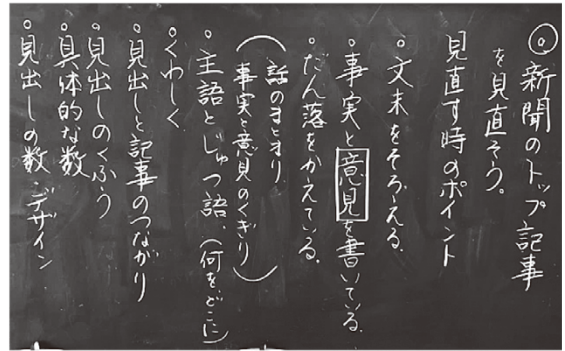 ◎新聞のトップ記事
を見直そう。
見直す時のポイント
・文末をそろえる
・事実と意見を書いている。
・だん落をかえている。
(話のまとまり
事実と意見のくぎり)
・主語とじゅつ語、(何を、どこに)
・くわしく
・見出しと記事のつながり
・見出しのくふう
・具体的な数
・見出しの数、デザイン